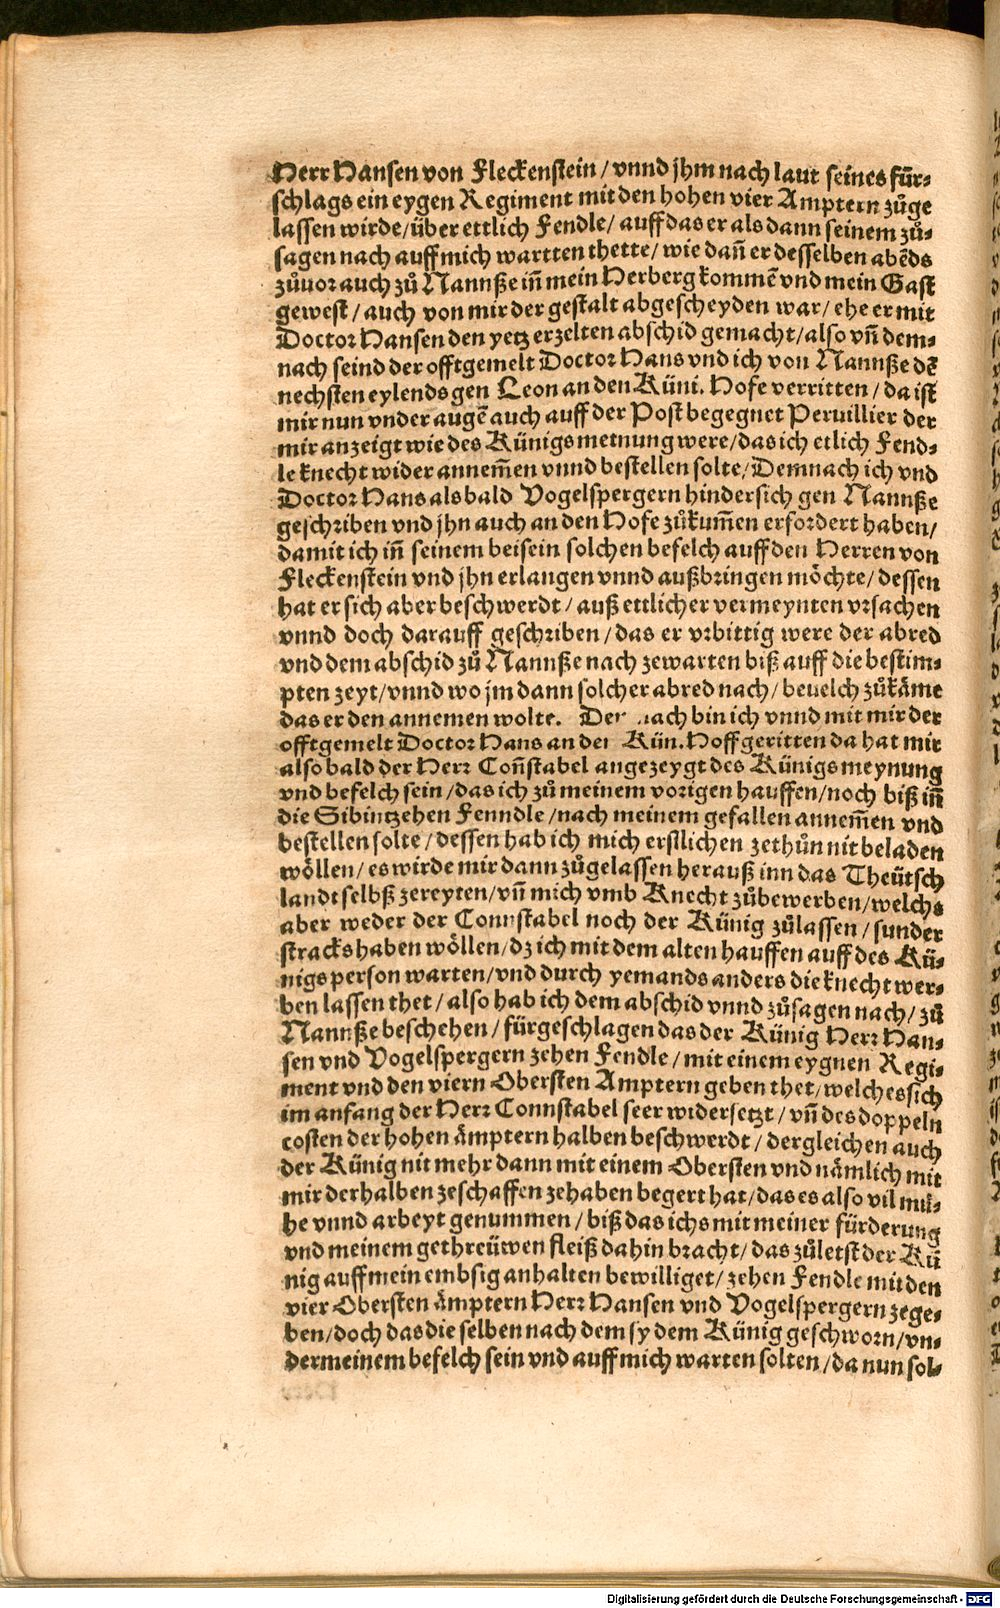 Herr Hansen von Fleckenstein / vnnd jhm nach laut seines für⸗
schlags ein eygen Regiment mit den hohen vier Amptern zůge
lassen wirde / über ettlich Fendle / auff das er als dann seinem zů⸗
sagen nach auff mich wartten thette / wie dañ er desselben abẽds
zůuor auch zů Nannße iñ mein Herberg kommẽ vnd mein Gast
gewest / auch von mir der gestalt abgescheyden war / ehe er mit
Doctor Hansen den yetz erzelten abschid gemacht / also vñ dem⸗
nach seind der offtgemelt Doctor Hans vnd ich von Nannße dẽ
nechsten eylends gen Leon an den Küni. Hofe verritten / da ist
mir nun vnder augẽ auch auff der Post begegnet Peruillier der
mir anzeigt wie des Künigs metnung were / das ich etlich Fend⸗
le knecht wider annem̃en vnnd bestellen solte / Demnach ich vnd
Doctor Hans als bald Vogelspergern hindersich gen Nannße
geschriben vnd jhn auch an den Hofe zůkum̃en erfordert haben /
damit ich iñ seinem beisein solchen befelch auff den Herren von
Fleckenstein vnd jhn erlangen vnnd außbringen möchte / dessen
hat er sich aber beschwerdt / auß ettlicher vermeynten vrsachen
vnnd doch darauff geschriben / das er vrbittig were der abred
vnd dem abschid zů Nannße nach zewarten biß auff die bestim⸗
pten zeyt / vnnd wo jm dann solcher abred nach / beuelch zůkäme
das er den annemen wolte. Der nach bin ich vnnd mit mir der
offtgemelt Doctor Hans an der Kün. Hoff geritten da hat mir
also bald der Herr Coñstabel angezeygt des Künigs meynung
vnd befelch sein / das ich zů meinem vorigen hauffen / noch biß iñ
die Sibintzehen Fenndle / nach meinem gefallen annem̃en vnd
bestellen solte / dessen hab ich mich erstlichen zethůn nit beladen
wöllen / es wirde mir dann zůgelassen herauß inn das Theütsch
landt selbß zereyten / vñ mich vmb Knecht zůbewerben / welchs
aber weder der Connstabel noch der Künig zůlassen / sunder
stracks haben wöllen / dz ich mit dem alten hauffen auff des Kü⸗
nigs person warten / vnd durch yemands anders die knecht wer⸗
ben lassen thet / also hab ich dem abschid vnnd zůsagen nach / zů
Nannße beschehen / fürgeschlagen das der Künig Herr Han⸗
sen vnd Vogelspergern zehen Fendle / mit einem eygnen Regi⸗
ment vnd den viern Obersten Amptern geben thet / welches sich
im anfang der Herr Connstabel seer widersetzt / vñ des doppeln
costen der hohen ämptern halben beschwerdt / dergleichen auch
der Künig nit mehr dann mit einem Obersten vnd nämlich mit
mir derhalben zeschaffen zehaben begert hat / das es also vil mü⸗
he vnnd arbeyt genummen / biß das ichs mit meiner fürderung
vnd meinem gethreüwen fleiß dahin bracht / das zůletst der Kü
nig auff mein embsig anhalten bewilliget / zehen Fendle mit den
vier Obersten ämptern Herr Hansen vnd Vogelspergern zege⸗
ben / doch das die selben nach dem sy dem Künig geschworn / vn⸗
der meinem befelch sein vnd auff mich warten solten / da nun sol⸗
Digitalisierung gefördert durch die Deutsche Forschungsgemeinschaft - DFG